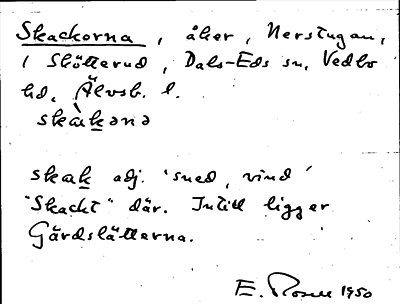 Skackorna, åker, Nerstugan,
1 Skötterud, Dals-Eds sn, Vedbo
hd, Älvsb. l.
skàkənə
skak adj. 'sned, vind'
"Skackt" där. Intill ligger
Gärdslätterna.
E. Rosell 1950